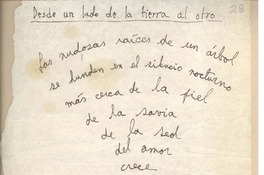 Desde un lado de la tierra al otro
28
Las nudosas raíces de un árbol
se hunden en el silencio nocturno
más cerca de la piel
de la savia
de la sed
del amor
crece